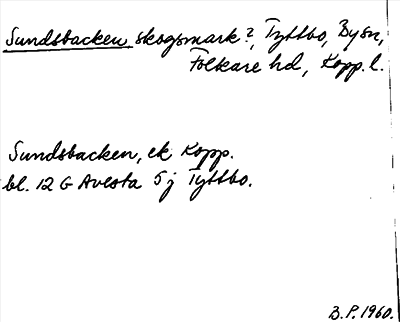 Sundsbacken skogsmark?, Tyttbo, By sn,
Folkare hd, Kopp. l.
Sundsbacken, ek Kopp.
bl. 12 G Avesta 5 j Tyttbo.
B.P. 1960.